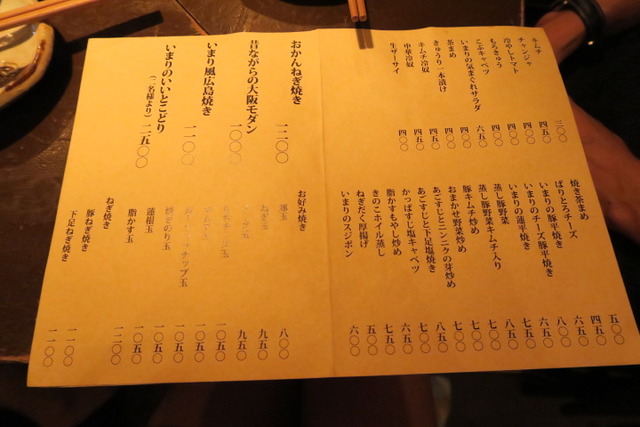 キムチ 三〇〇
チャンジャ 四五〇
冷やしトマト 四〇〇
もろきゅう 四〇〇
こぶキャベツ 四〇〇
いまりの気まぐれサラダ 六五〇
茶まめ 四〇〇
きゅうり一本漬け 四五〇
キムチ冷奴 四五〇
中華冷奴 四〇〇
生ザーサイ 四〇〇
焼き茶まめ 五〇〇
ぱりとろチーズ 四五〇
いまりの豚平焼き 六五〇
いまりのチーズ豚平焼き 八〇〇
いまりの蓮平焼き 六五〇
蒸し豚野菜 七〇〇
蒸し豚野菜キムチ入り 八五〇
豚キムチ炒め 七〇〇
おまかせ野菜炒め 七〇〇
あごすじとニンニクの芽炒め 八五〇
あごすじと下足塩焼き 八〇〇
かっぱすじ塩キャベツ 七〇〇
脂かすもやし炒め 六五〇
きのこホイル蒸し 七五〇
ねぎだく厚揚げ 五〇〇
いまりのスジポン 六〇〇
おかんねぎ焼き 一二〇〇
昔ながらの大阪モダン 一〇〇〇
いまり風広島焼き 一一〇〇
いまりのいいとこどり
(二名様より) 二五〇〇
お好み焼き
豚玉 八〇〇
ねぎ玉 九五〇
九五〇
一〇五〇
一〇五〇
一〇五〇
のり玉 一〇五〇
蓮根玉 一〇五〇
脂かす玉 一〇五〇
ねぎ焼き
豚ねぎ焼き 一一〇〇
下足ねぎ焼き 一一〇〇